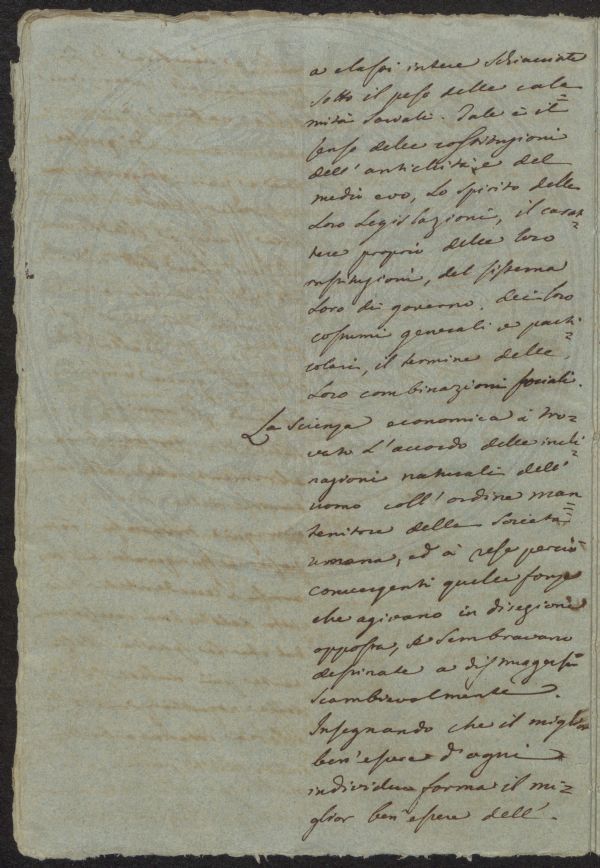 a classi intere schiacciate
sotto il peso delle cala=
mità sociali. Tale è il
senso delle costituzioni
dell' antichità, e del
medio evo, Lo spirito delle
Loro Legislazioni, il carat=
tere proprio delle loro
instituzioni, del sistema
Loro di governo. Dei Loro
costumi generali e parti=
colari, il termine delle
Loro combinazioni sociali.
La Scienza economica à tro=
vato L'accordo delle incli=
nazioni naturali dell'
uomo coll' ordine man=
tenitore della Società
umana, ed à rese perciò
convergenti quelle forze
che agivano in direzioni
opposta, e Sembravano
destinate a distruggersi
Scambievolmente.
Insegnando che il miglior
ben'essere d'ogni
individuo forma il mi=
glior ben'essere dell'